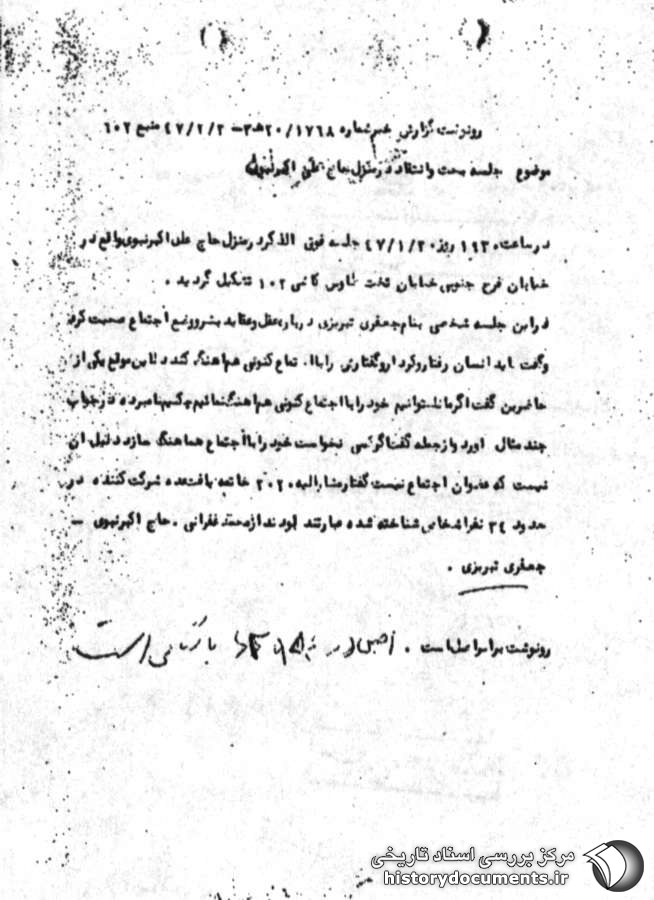 رونوشت گزارش خبر شماره ۲۰/۱۷۶۸هـ۳ – ۴۷/۲/۲ منبع ۶۰۲
موضوع جلسه بحث و انتقاد در منزل حاج علی اکبر نبوی
در ساعت ۱۹۳۰ روز ۴۷/۱/۲۰ جلسه فوق الذکر در منزل حاج علی اکبر نبوی واقع در
خیابان فرح جنوبی خیابان تخت طاوس کاشی ۱۰۲ تشکیل گردید .
در این جلسه شخصی بنام جعفری تبریزی درباره عقل و عقاید بشر و وضع اجتماع صحبت کرد
وگفت باید انسان رفتار و کردار و گفتارش را با اجتماع کنونی هم اهنگ کند در این موقع یکی از
حاضرین گفت اگر ما نتوانستیم خود را با اجتماع کنونی هم اهنگ نمائیم چکنیم نامبرده در جواب
چند مثال اورد و از جمله گفت اگر کسی نخواست خود را با اجتماع هماهنگ سازد دلیل ان
نیست که عضو ان اجتماع نیست گفتار مشارالیه ۲۰۲۰ خاتمه یافت عده شرکت کننده در
حدود ۳۴ نفر اشخاص شناخته شده عبارتند بودند از محمد غفرانی . حاج اکبر نبوی –
جعفری تبریزی .
رونوشت برابر اصل است . اصل در است
مرکز بررسی اسناد تاریخی
historydocuments.ir